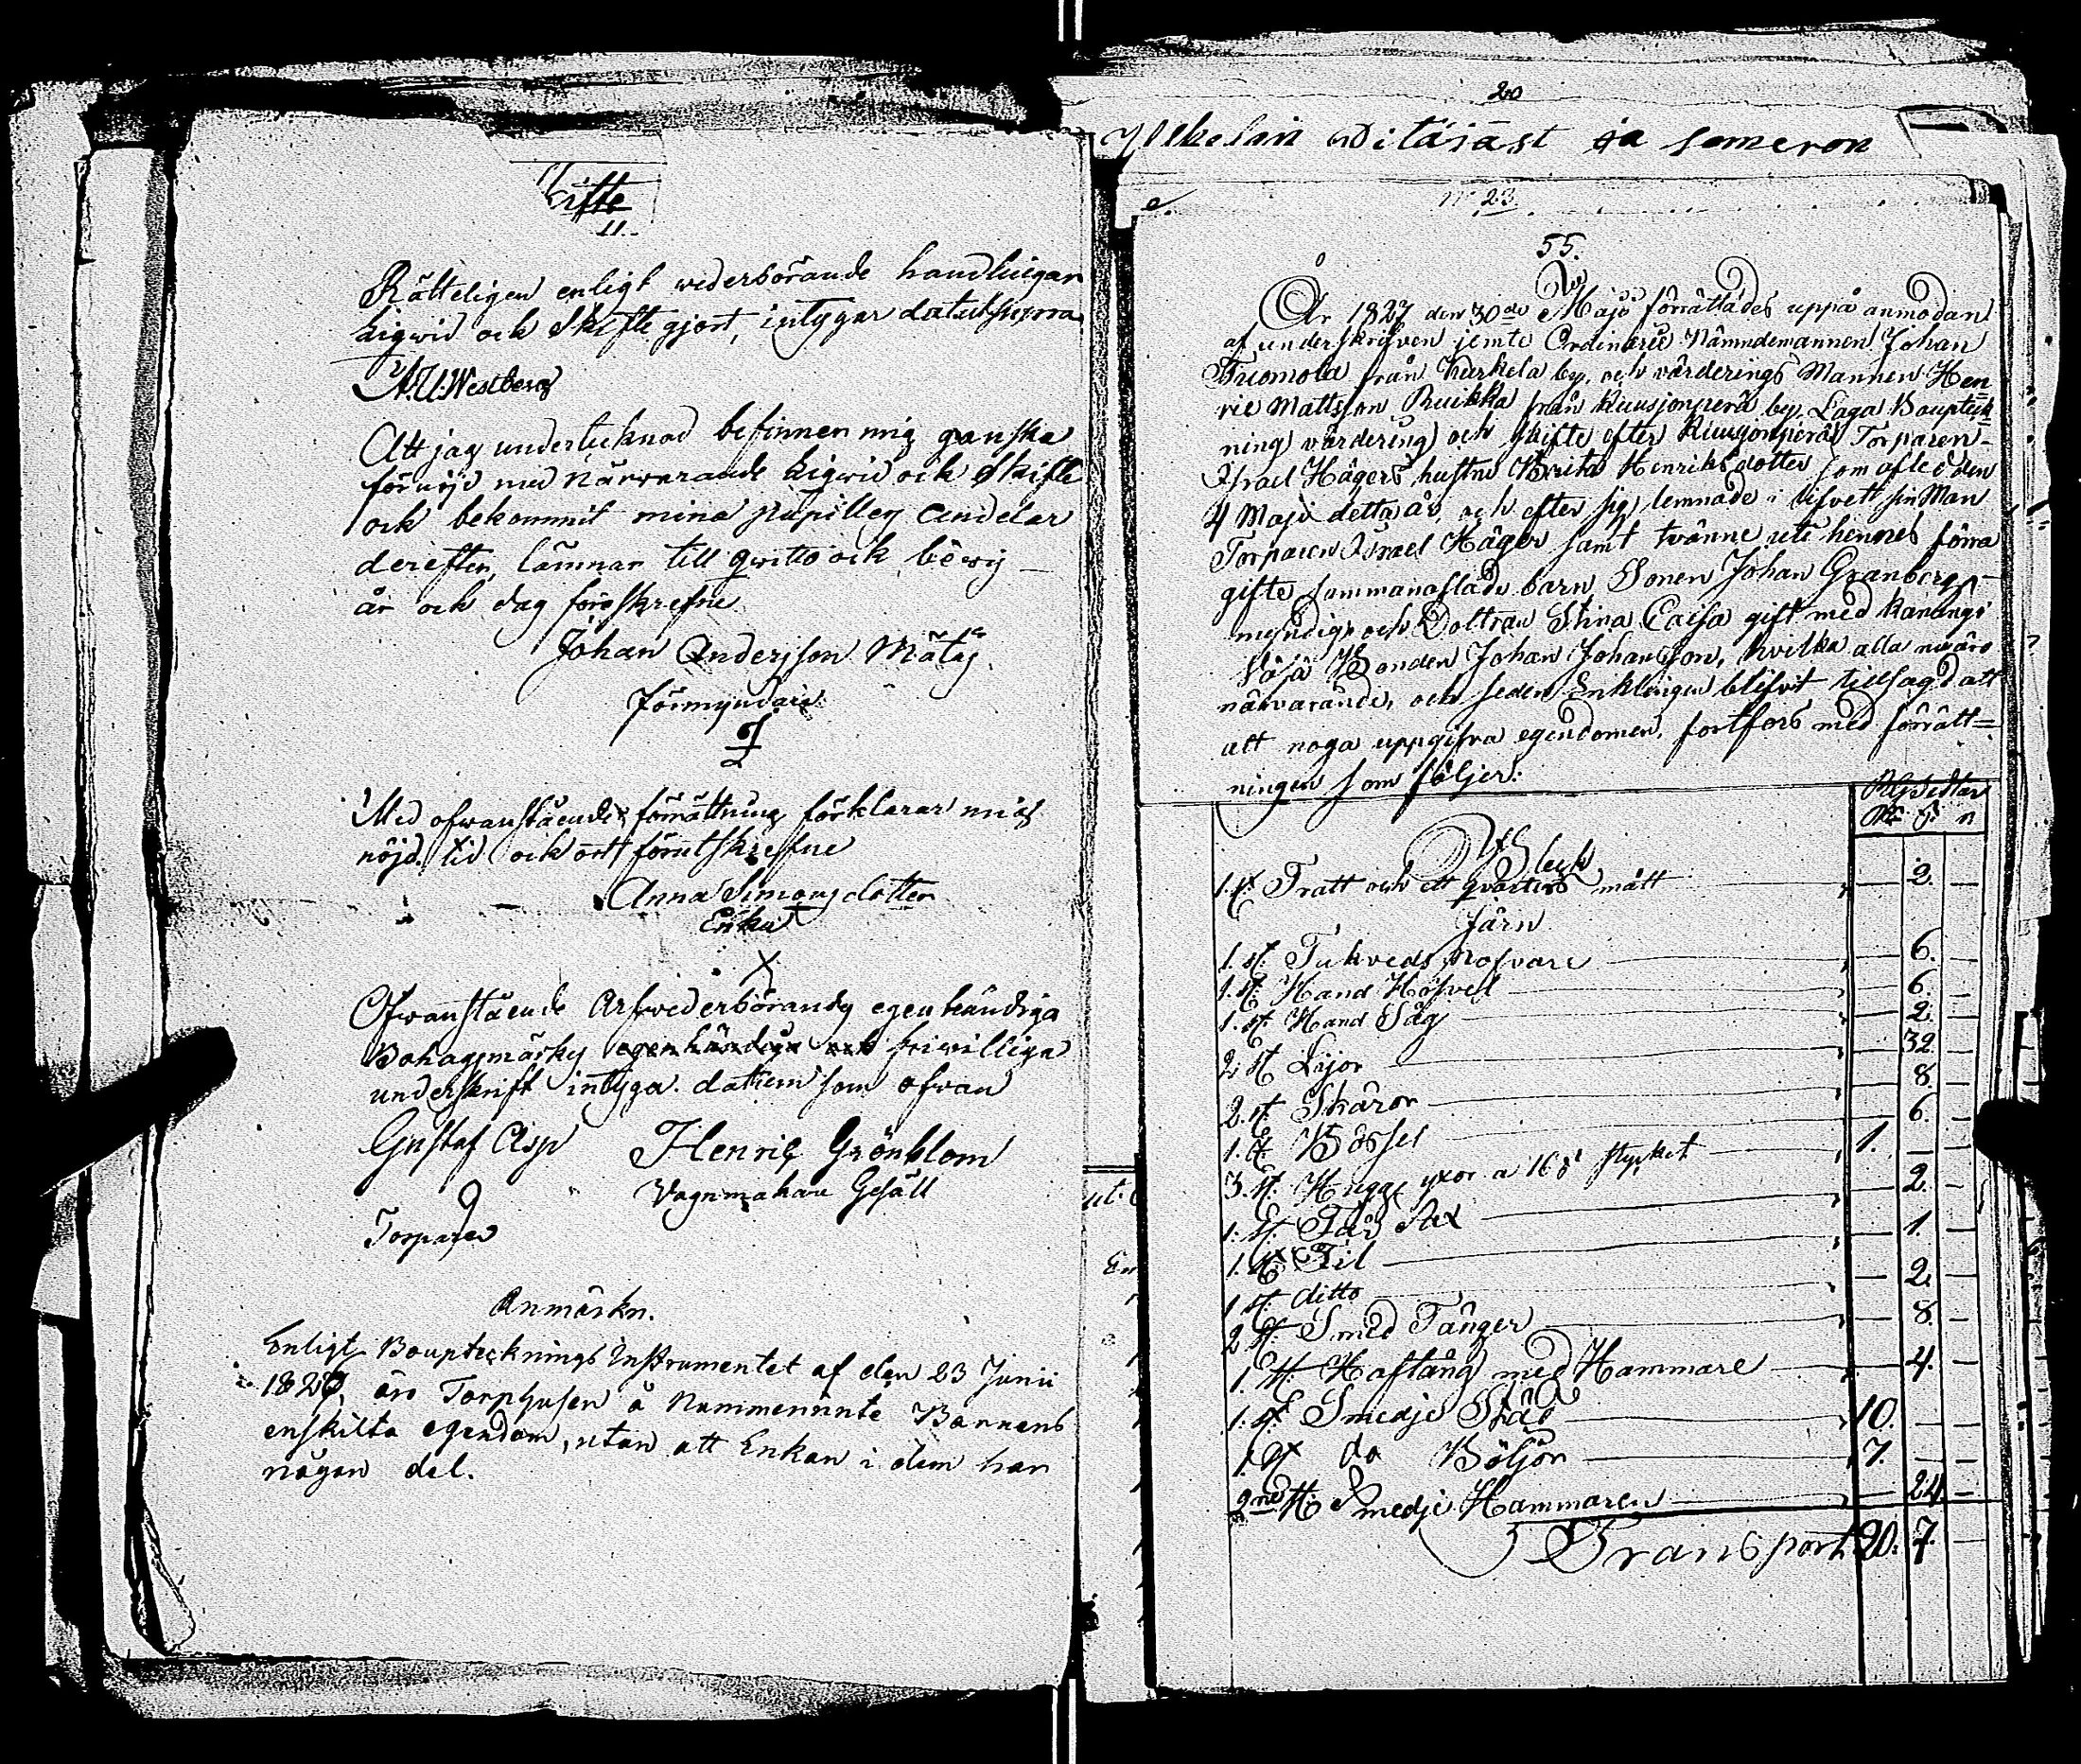 Skifte
11.
Rätteligen enligt wederbörande handlingar
Ligwid och Skifte gjort, intygar datutsupra
A. U. Westberg
Att jag undertecknad befinner mig ganska
förnöjd med närwarande Ligwid och Skifte
och bekommit mina pupillers andelar
derefter, lämnar till qwitto och bewis
år och dag föreskrefne
Johan Andersson Mätas
förmyndare
Med ofwanstående förrättning förklarar mig
nöjd. tid och ort förutskrefne
Anna Simonsdotter
Enka
X
Ofwanstående Arfwederbörandes egenhändiga
Bohagsmärkes egenhändiga och friwilliga
underskrift intyga. datum som ofwan
Gustaf Asp Henric Grönblom
Torpare Vagnmakare Gesäll
Anmärkn.
Enligt Bouptecknings Instrumentet af den 23 Junii
1826, äro Torphusen å Nummenninte Barnens
enskilta egendom, utan att Enkan i dem har
någon del.
20
ditäjäst ja someron
No 23
55.
År 1827 den 30de Maji förrättades uppå anmodan
af underskrifven jemte Ordinarie Nämndemannen Johan
Tuomola från Kurkela by, och värderings Mannen Hen=
ric Mattsson Ruikka från Ruusjonperä by, Laga Boupteck=
ning värdering och skifte efter Ruusjonperäs Torparen
Israel Hägers hustru Brita Henriksdotter som afled den
4 Maji detta år, och efter sig lemnade i lifvet sin Man
Torparen Israel Häger samt tvänne uti hennes förra
gifte sammanaflade barn, Sonen Johan Granberg
myndig, och Dottran Stina Caisa gift med
Bonden Johan Johansson, hvilka alla nu äro
närvarande, och sedan Enklingen blifvit tillsagd att
att noga uppgifva egendomen, fortfors med förrätt=
ningen som följer:
RG Sedlar
Bleck
1. st. Tratt och ett qvarters mått — 2. —
Järn
1. st. Tukveds Nafvare — 6. —
1. st. Hand Höfvel — 6. —
1. st. Hand Såg — 2. —
2. st. Lijor — 32. —
2. st. Skäror — 8. —
1. st. Bössel — 6. —
3. st. Hugg yxor a 16 s: stycket 1. — —
1. st. Får Sax — 2. —
1. st. Fil — 1. —
1 st. ditto — 2. —
2 st. Smed Tänger — 8. —
1. st. Haftång med Hammare — 4. —
1. st. Smedje Städ 10. — —
1. st do Böljor 7. — —
2ne st. Smedje Hammaren — 24 —
Transport 20. 7. —